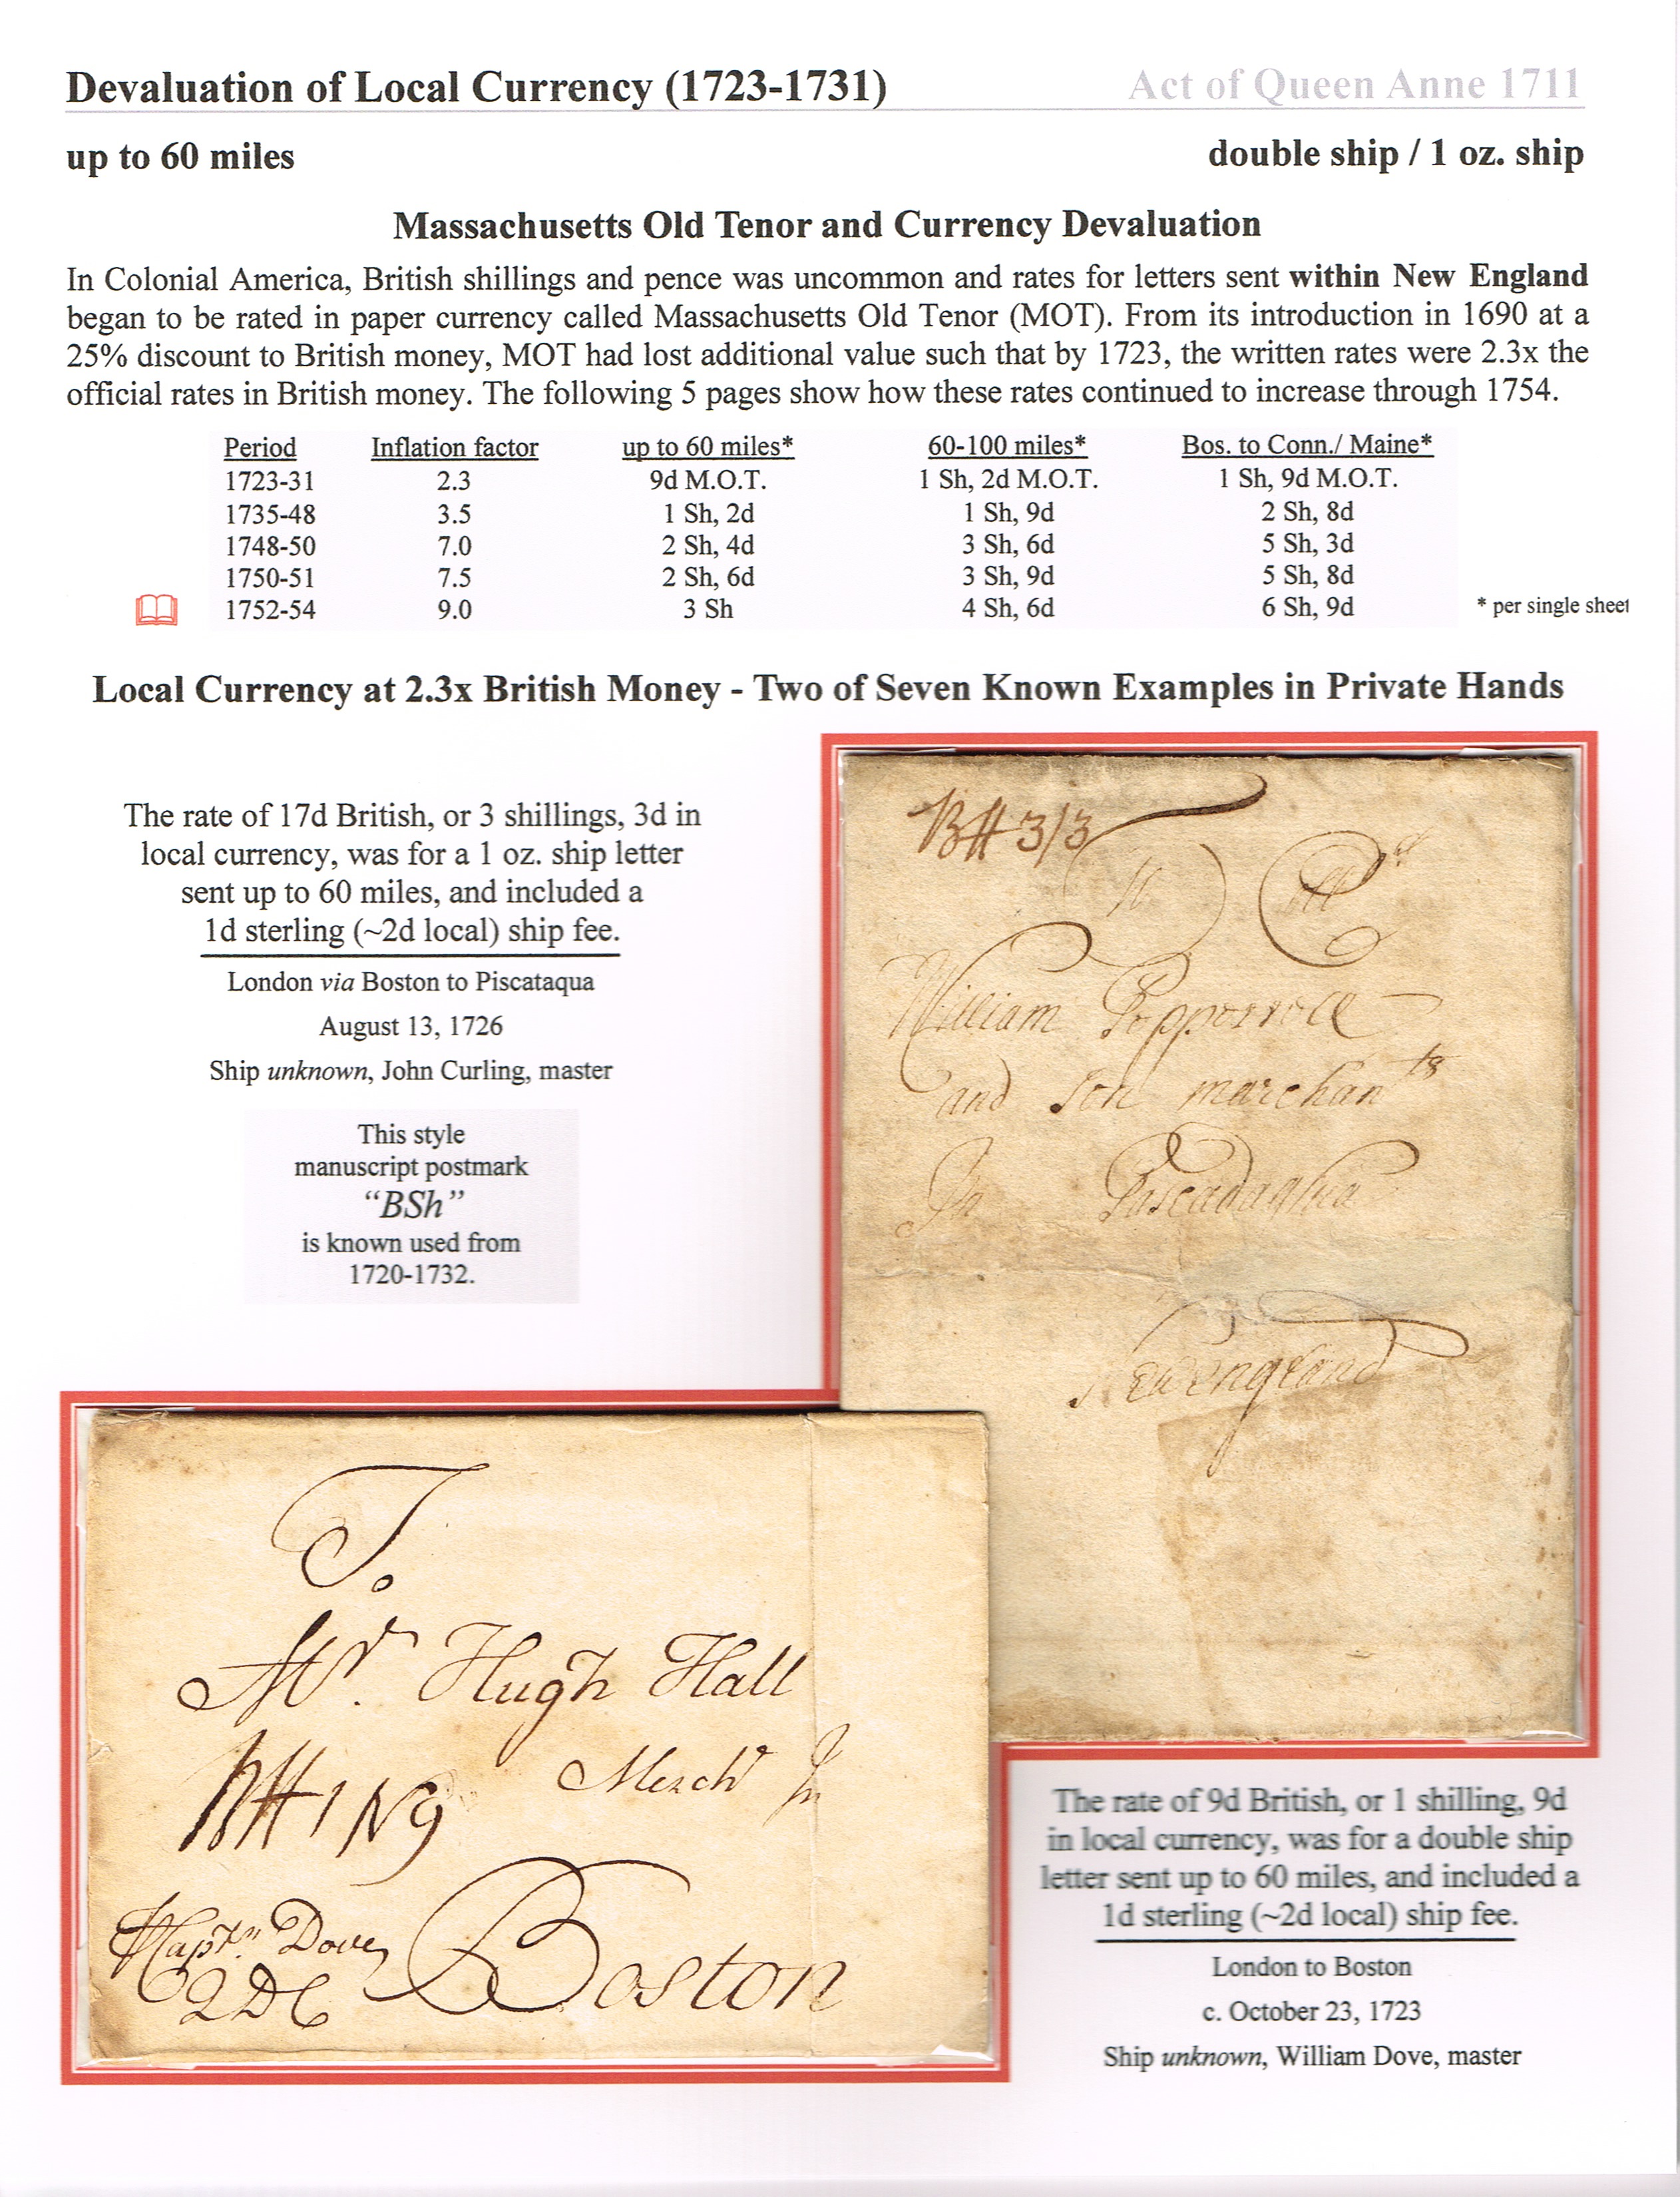 Devaluation of Local Currency (1723-1731)
Act of Queen Anne 1711
up to 60 miles
double ship / 1 oz. ship
Massachusetts Old Tenor and Currency Devaluation
In Colonial America, British shillings and pence was uncommon and rates for letters sent within New England
began to be rated in paper currency called Massachusetts Old Tenor (MOT). From its introduction in 1690 at a
25% discount to British money, MOT had lost additional value such that by 1723, the written rates were 2.3x the
official rates in British money. The following 5 pages show how these rates continued to increase through 1754.
Period Inflation factor up to 60 miles* 60-100 miles* Bos. to Conn./ Maine*
1723-31 2.3 9d M.O.T. 1 Sh, 2d M.O.T. 1 Sh, 9d M.O.T.
1735-48 3.5 1 Sh, 2d 1 Sh, 9d 2 Sh, 8d
1748-50 7.0 2 Sh, 4d 3 Sh, 6d 5 Sh, 3d
1750-51 7.5 2 Sh, 6d 3 Sh, 9d 5 Sh, 8d
1752-54 9.0 3 Sh 4 Sh, 6d 6 Sh, 9d * per single sheet
Local Currency at 2.3x British Money - Two of Seven Known Examples in Private Hands
The rate of 17d British, or 3 shillings, 3d in
local currency, was for a 1 oz. ship letter
sent up to 60 miles, and included a
1d sterling (~2d local) ship fee.
London via Boston to Piscataqua
August 13, 1726
Ship unknown, John Curling, master
This style
manuscript postmark
“BSh”
is known used from
1720-1732.
3/3
William Pepperrell
and son marchants
In Piscadaqua
Newengland
To
Mr. Hugh Hall
Mercht In
1 N 9
Captn. Dove
2DC
Boston
The rate of 9d British, or 1 shilling, 9d
in local currency, was for a double ship
letter sent up to 60 miles, and included a
1d sterling (~2d local) ship fee.
London to Boston
c. October 23, 1723
Ship unknown, William Dove, master